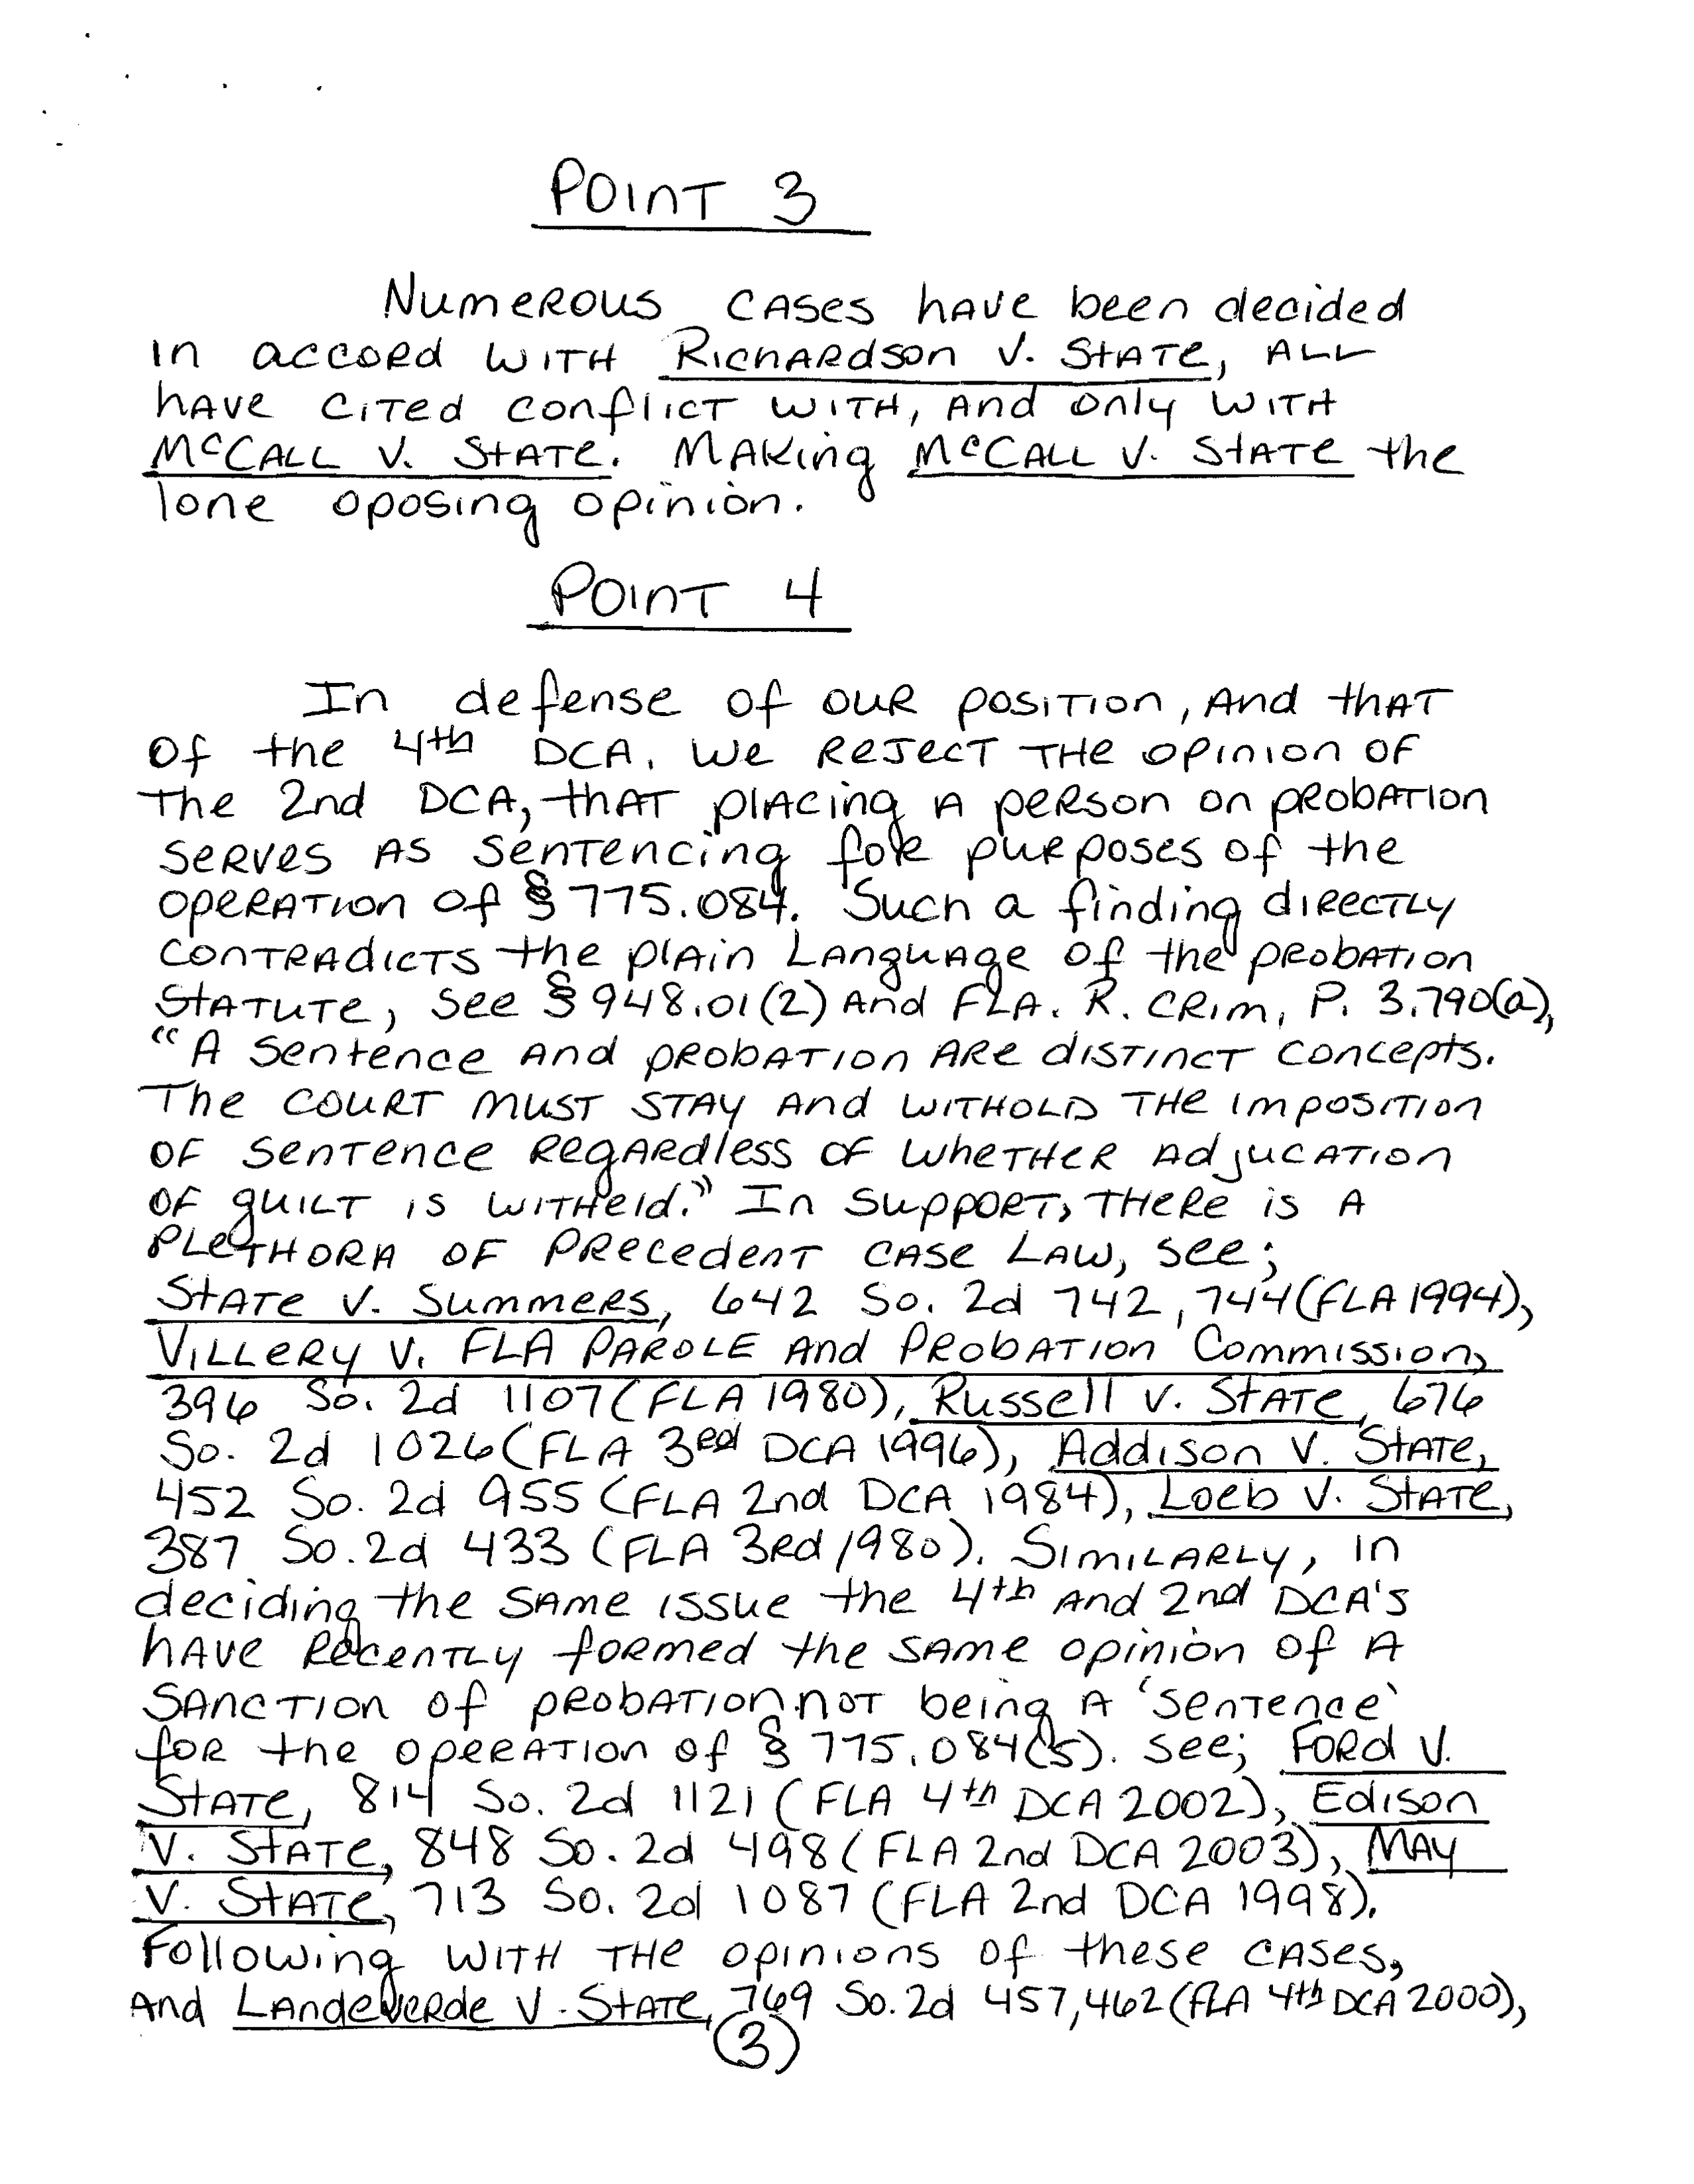 POINT 3
Numerous cases have been decided
in accord with Richardson v. State, all
have cited conflict with, and only with
McCall v. State. Making McCall v. State the
lone oposing opinion.
POINT 4
In defense of our position, and that
of the 4th DCA. We reject the opinion of
the 2nd DCA, that placing a person on probation
serves as sentencing for purposes of the
operation of § 775.084. Such a finding directly
contradicts the plain language of the probation
statute, see § 948.01(2) and FLA. R. Crim. P. 3.790(a),
"A sentence and probation are distinct concepts.
The court must stay and withold the imposition
of sentence regardless of whether adjucation
of guilt is witheld." In support, there is a
plethora of precedent case law, see;
State v. Summers, 642 So. 2d 742, 744 (FLA 1994),
Villery v. FLA Parole and Probation Commission,
396 So. 2d 1107 (FLA 1980), Russell v. State, 676
So. 2d 1026 (FLA 3rd DCA 1996), Addison v. State,
452 So. 2d 955 (FLA 2nd DCA 1984), Loeb v. State,
387 So. 2d 433 (FLA 3rd 1980). Similarly, in
deciding the same issue the 4th and 2nd DCA's
have recently formed the same opinion of a
sanction of probation not being a 'sentence'
for the operation of § 775.084(5). See; Ford v.
State, 814 So. 2d 1121 (FLA 4th DCA 2002), Edison
v. State, 848 So. 2d 498 (FLA 2nd DCA 2003), May
v. State, 713 So. 2d 1087 (FLA 2nd DCA 1998).
Following with the opinions of these cases,
and Landeverde v. State, 769 So. 2d 457, 462 (FLA 4th DCA 2000),
(3)